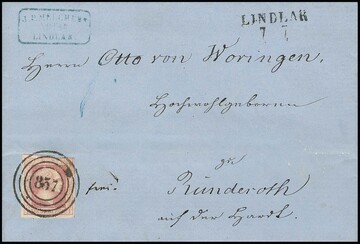 LINDLAR
LINDLAR
7 7
Herrn Otto von Woringen
Hochwohlgeboren
zu
857
frei.
Ründeroth
auf der Hardt.